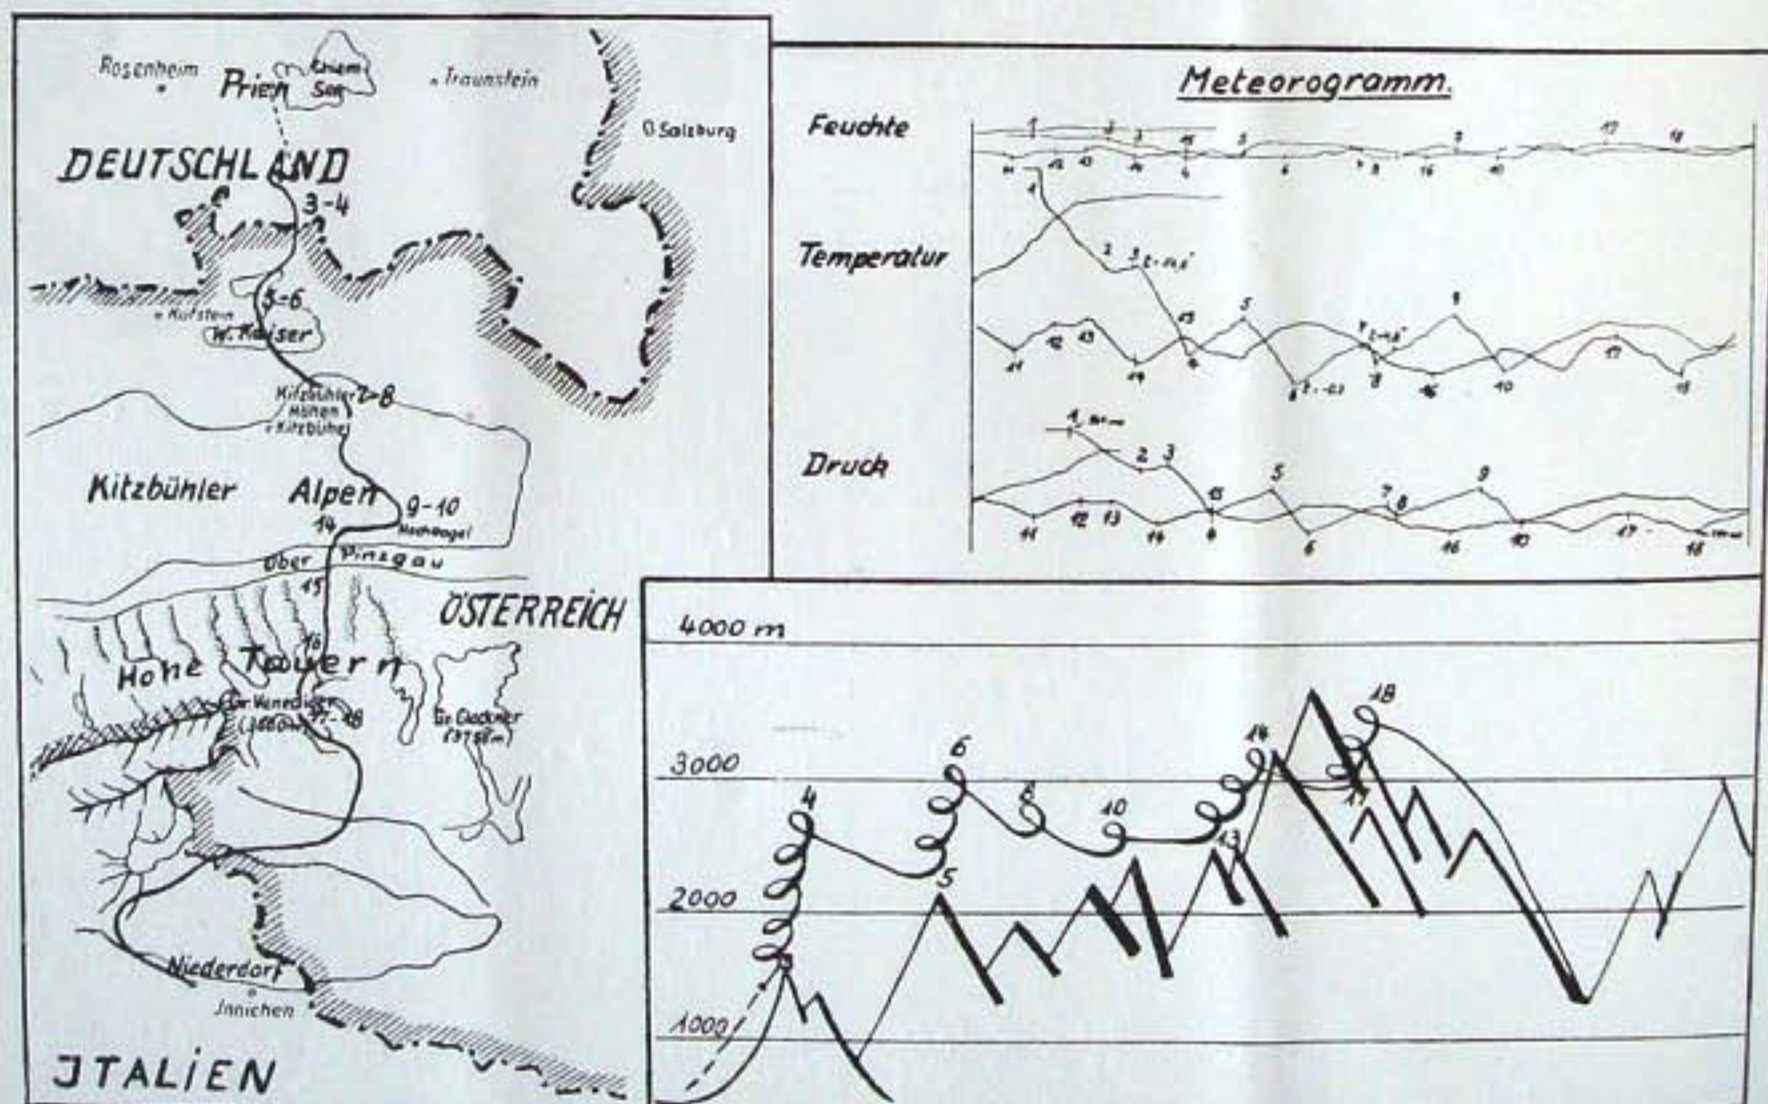 Rosenheim
Prien
Chiem
See
Traunstein
Salzburg
DEUTSCHLAND
3-4
5-6
Kufstein
W. Kaiser
Kitzbühler
Höhen
Kitzbühel
7-8
Kitzbühler Alpen
9-10
14
Ober Pinzgau
15
ÖSTERREICH
16
Hohe Tauern
Gr. Venediger
17-18
Gr. Glockner
Niederdorf
Innichen
JTALiEN
Meteorogramm.
Feuchte
1 2 3 15 5 9 17 18
11 12 13 14 4 6 7 8 16 10
Temperatur
1
2 3
15 5 7 9
11 12 13 14 4 6 8 16 10 17 18
Druck
1
2 3 5 7 9
15 8
11 12 13 14 4 6 16 10 17 18
4000 m
3000
2000
1000
3
4
5
6
8
10
13
14
17
18